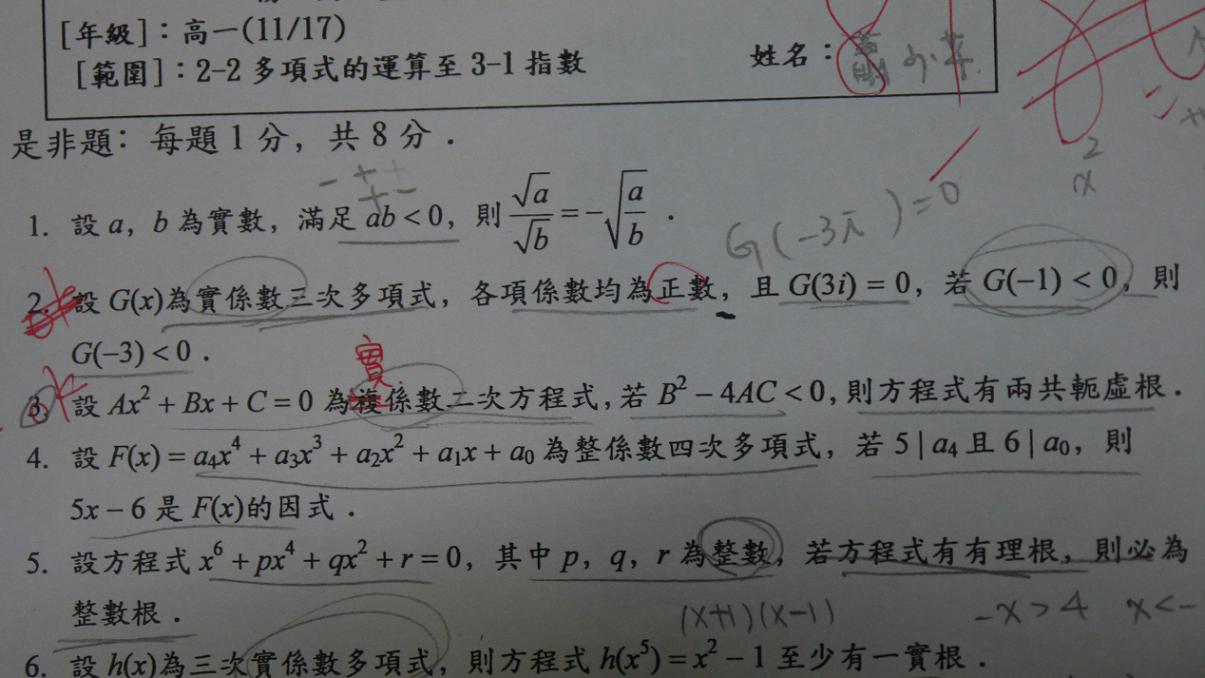 [年級]：高一(11/17)
[範圍]：2-2 多項式的運算至 3-1 指數
姓名：
是非題：每題 1 分，共 8 分．
1. 設 a，b 為實數，滿足 ab < 0，則 √a/√b = −√(a/b)．
G(-3i) = 0
2. 設 G(x)為實係數三次多項式，各項係數均為正數，且 G(3i) = 0，若 G(−1) < 0，則
G(−3) < 0．
實
3. 設 Ax² + Bx + C = 0 為複係數二次方程式，若 B² − 4AC < 0，則方程式有兩共軛虛根．
4. 設 F(x) = a₄x⁴ + a₃x³ + a₂x² + a₁x + a₀ 為整係數四次多項式，若 5 | a₄ 且 6 | a₀，則
5x − 6 是 F(x)的因式．
5. 設方程式 x⁶ + px⁴ + qx² + r = 0，其中 p，q，r 為整數，若方程式有有理根，則必為
整數根．
(x+1)(x-1) -x>4 x<-
6. 設 h(x)為三次實係數多項式，則方程式 h(x⁵) = x² − 1 至少有一實根．